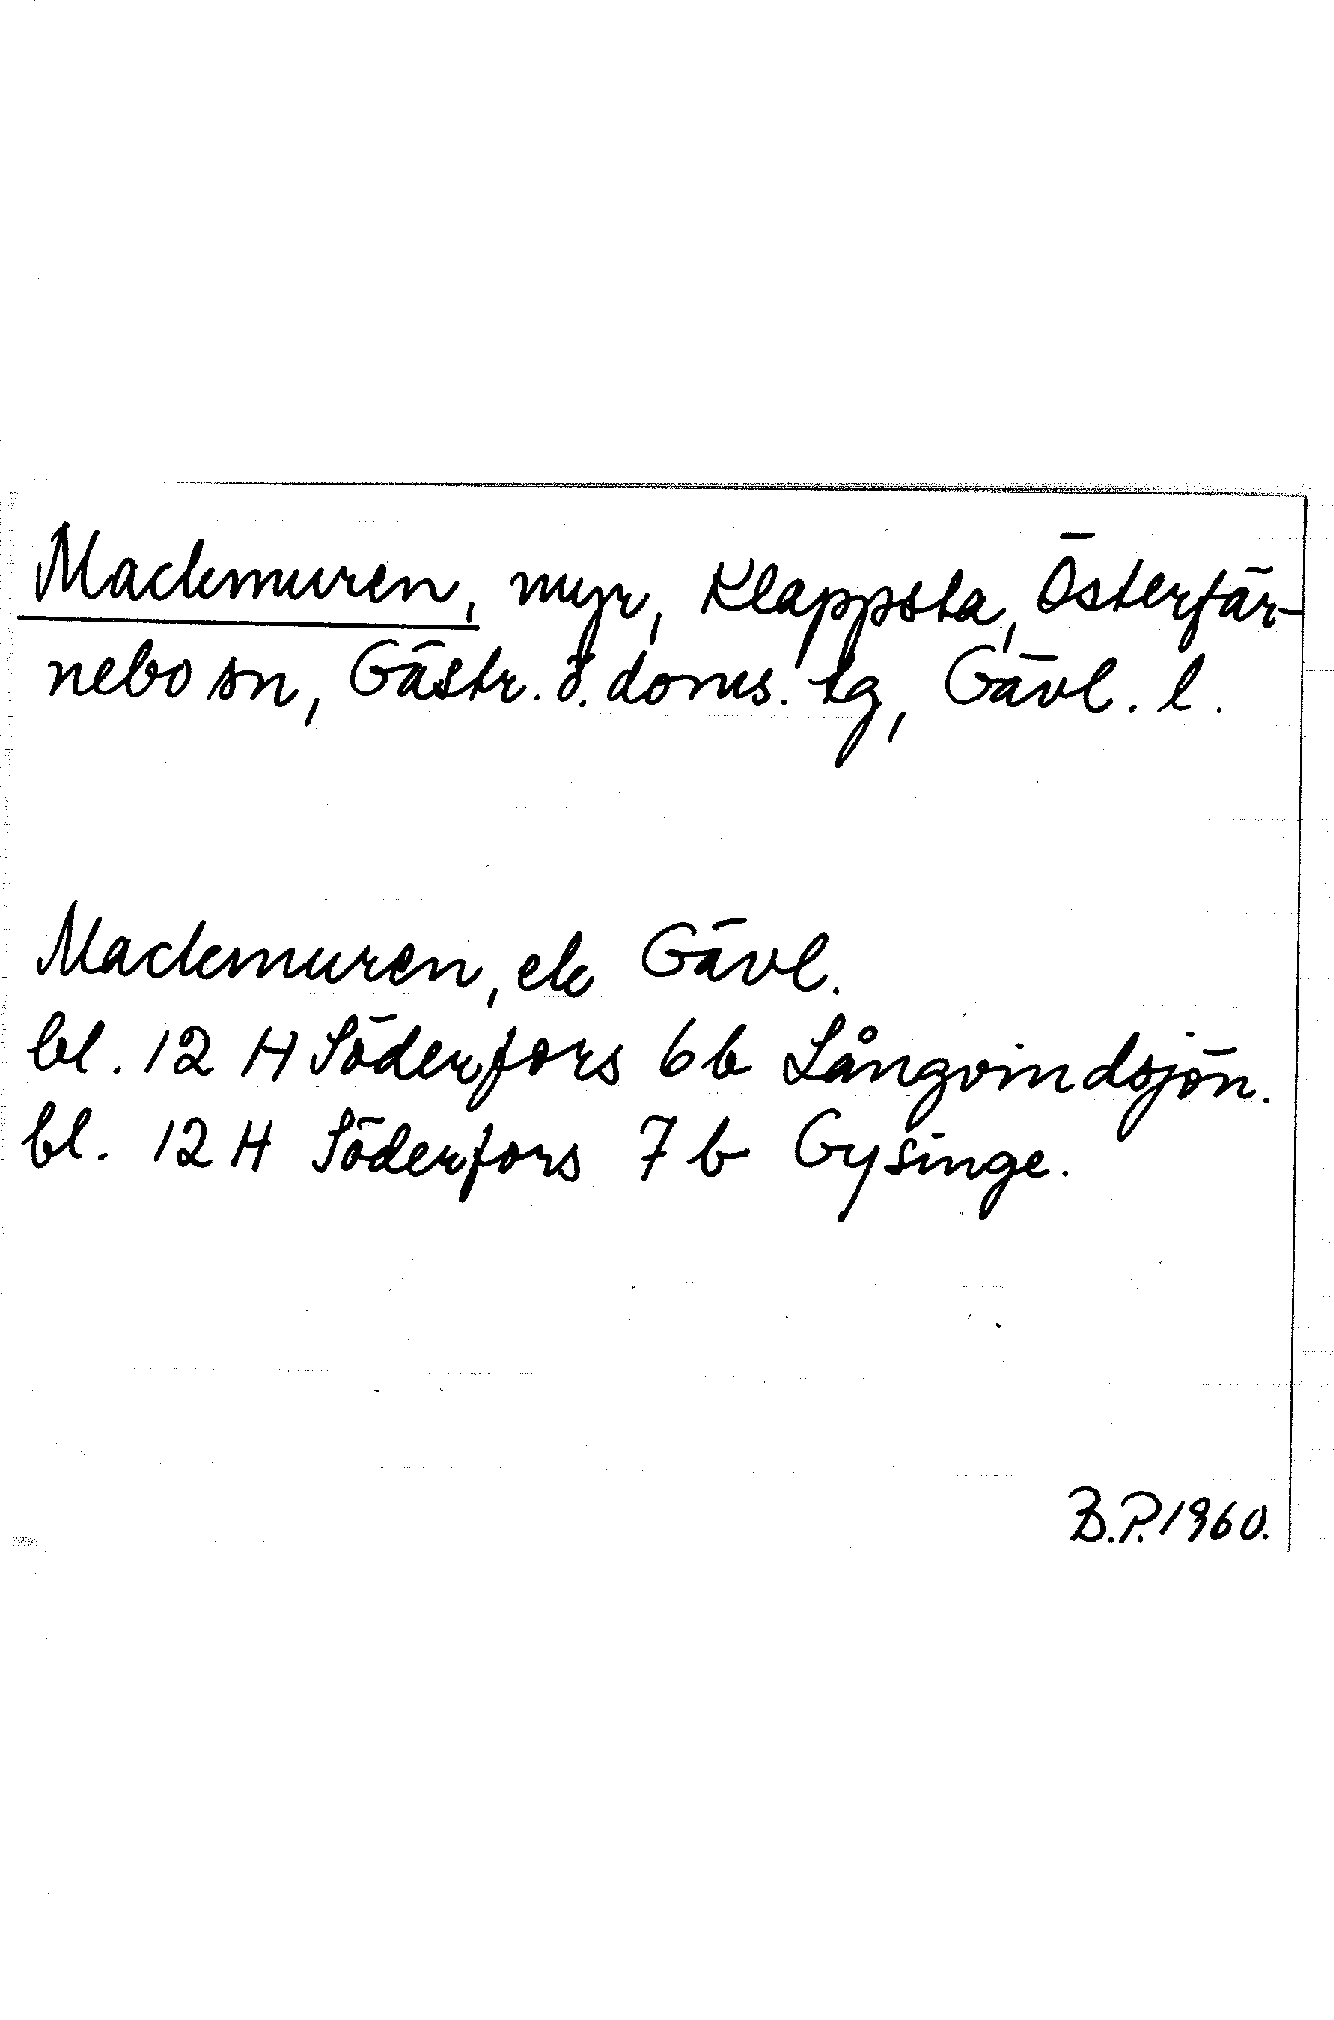 Mackmuren, myr, Klappsta, Österfär-
nebo sn, Gästr. ö. doms. tg, Gävl. l.
Mackmuren, ek Gävl.
bl. 12 H Söderfors 6b Långvindsjön.
bl. 12 H Söderfors 7b Gysinge.
B.P. 1960.